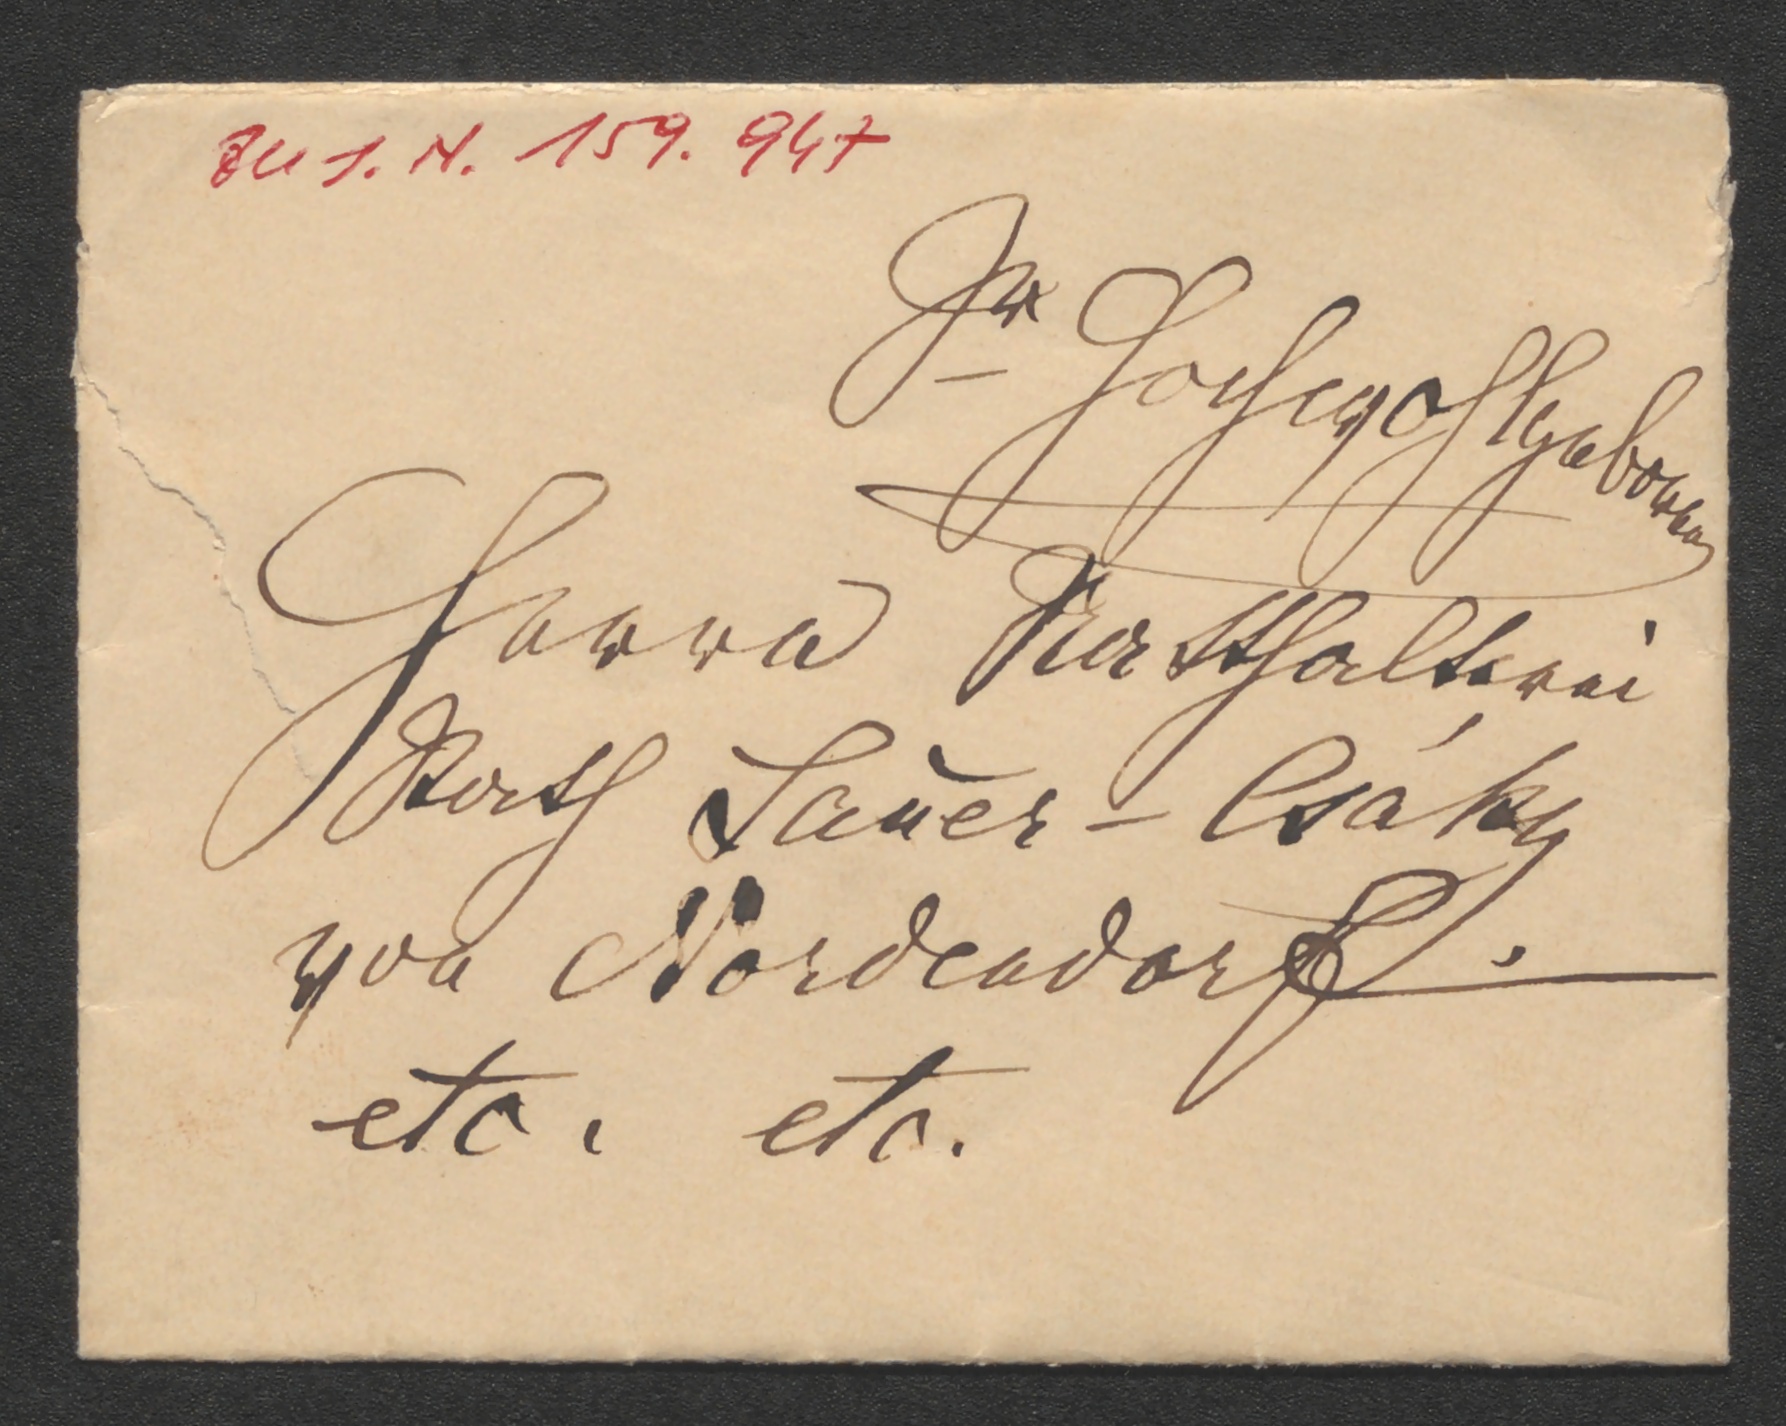 Zu I. N. 159.947
Sr Hochwohlgeboren
Herrn Statthalterei
Rath Sauer-Csáky
von Nordendorf.
etc. etc.